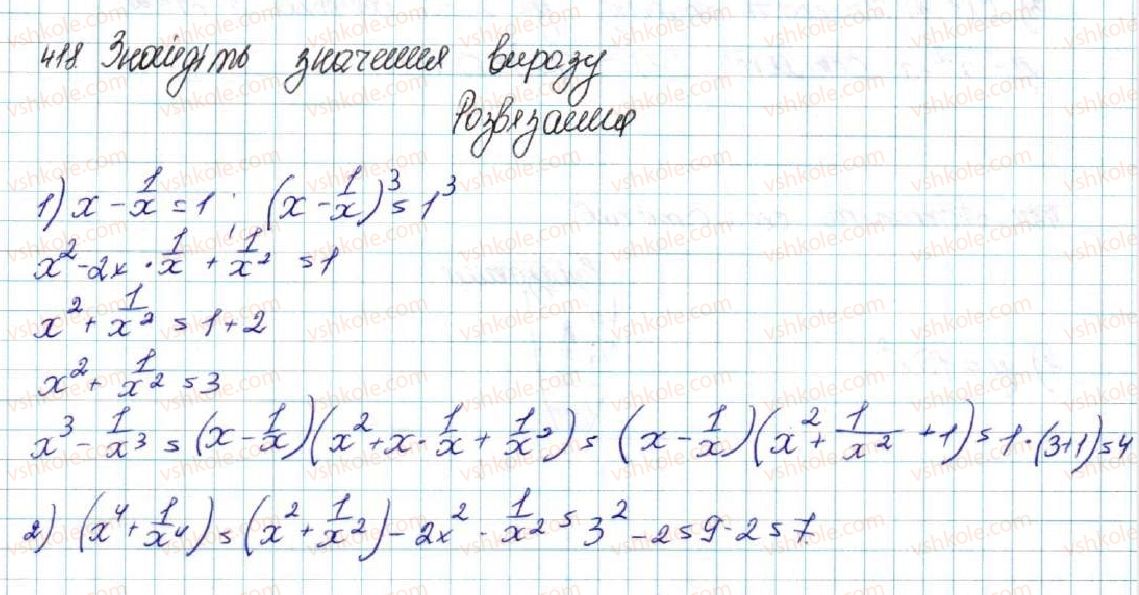 418 Знайдіть значення виразу
Розвязання
1) x - 1/x = 1; (x - 1/x)^3 = 1^3
x^2 - 2x · 1/x + 1/x^2 = 1
x^2 + 1/x^2 = 1 + 2
x^2 + 1/x^2 = 3
x^3 - 1/x^3 = (x - 1/x)(x^2 + x · 1/x + 1/x^2) = (x - 1/x)(x^2 + 1/x^2 + 1) = 1 · (3+1) = 4
2) (x^4 + 1/x^4) = (x^2 + 1/x^2) - 2x^2 · 1/x^2 = 3^2 - 2 = 9 - 2 = 7.